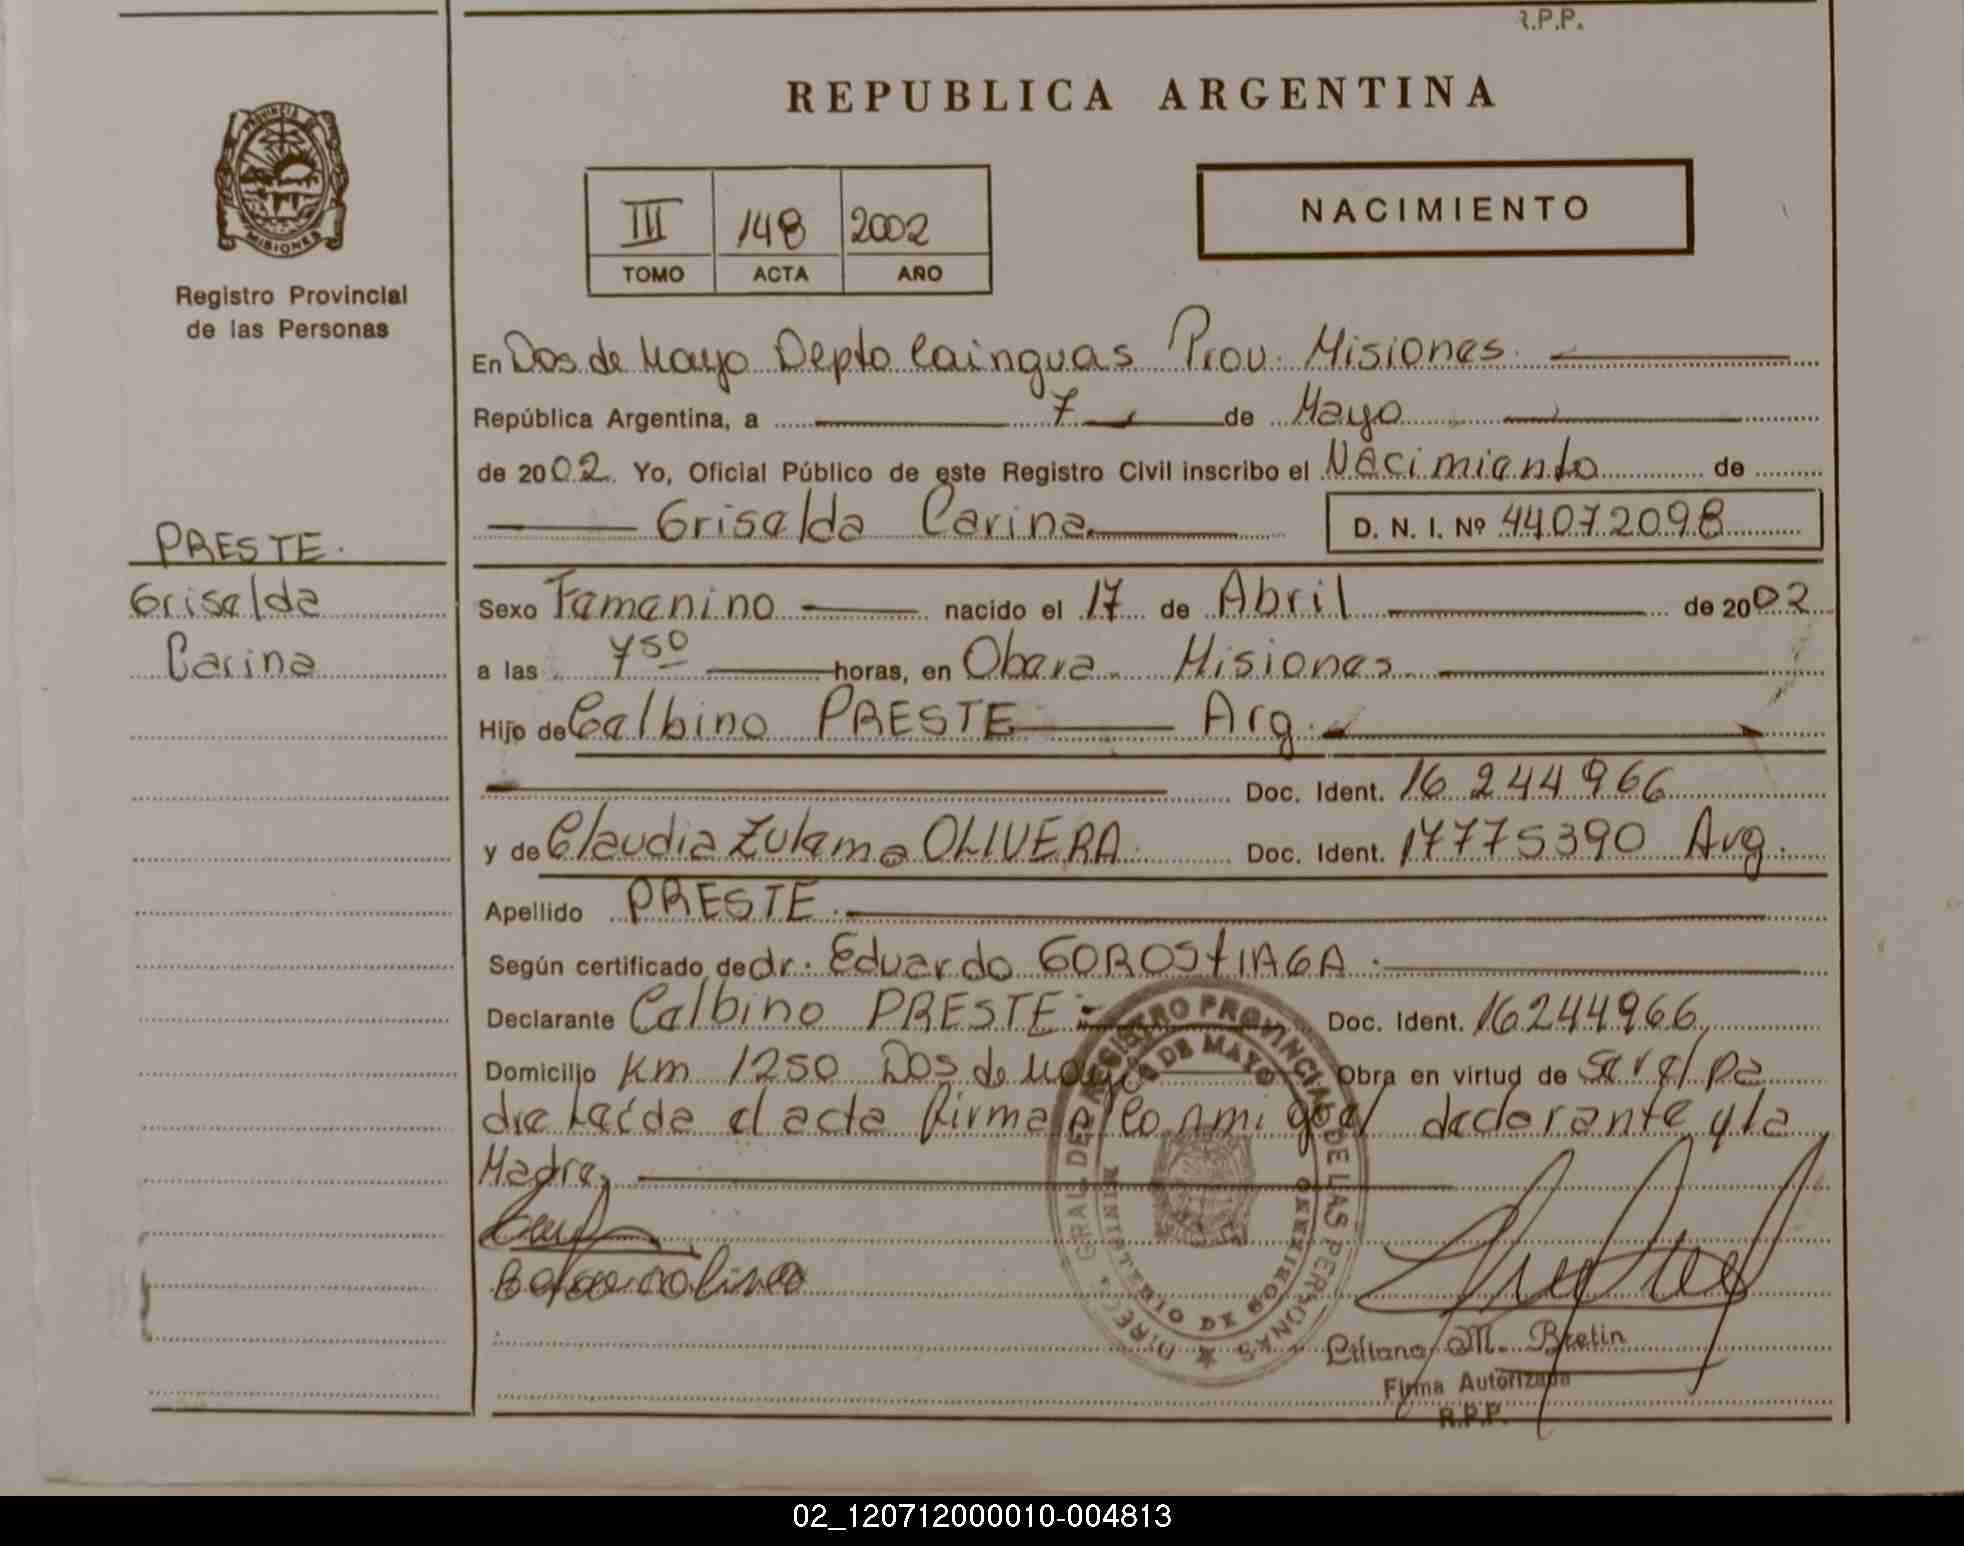 R.P.P.
REPUBLICA ARGENTINA
PROVINCIA DE
MISIONES
Registro Provincial
de las Personas
III 148 2002
TOMO ACTA AÑO
NACIMIENTO
En Dos de Mayo Depto Cainguas Prov. Misiones.
República Argentina, a 7 de Mayo
de 2002. Yo, Oficial Público de este Registro Civil inscribo el Nacimiento de
Griselda Carina D. N. I. Nº 44.072.098
PRESTE.
Griselda
Carina
Sexo Femenino nacido el 17 de Abril de 2002
a las 7 50 horas, en Obera Misiones
Hijo de Calbino PRESTE Arg.
Doc. Ident. 16.244.966
y de Claudia Zulema OLIVERA. Doc. Ident. 17775390 Arg.
Apellido PRESTE.
Según certificado de dr. Eduardo GOROSTIAGA.
Declarante Calbino PRESTE Doc. Ident. 16244966
Domicilio Km 1250 Dos de Mayo Obra en virtud de ser el pa
dre Leída el acta firman conmigo el declarante y la
Madre.
DIREC. GRAL. DEL REGISTRO PROVINCIAL DE LAS PERSONAS
DE MAYO
MINISTERIO DE GOBIERNO
Liliana M. Bretin
Firma Autorizada
R.P.P.
02_120712000010-004813